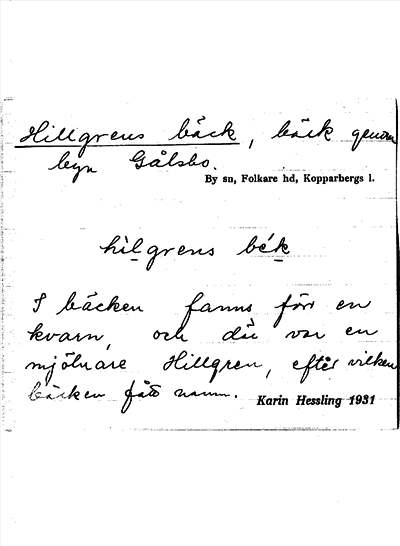 Hillgrens bäck, bäck genom
byn Gålsbo.
By sn, Folkare hd, Kopparbergs l.
hìl̲grens bék̲
I bäcken fanns förr en
kvarn, och där var en
mjölnare Hillgren, efter vilken
bäcken fått namn.
Karin Hessling 1931